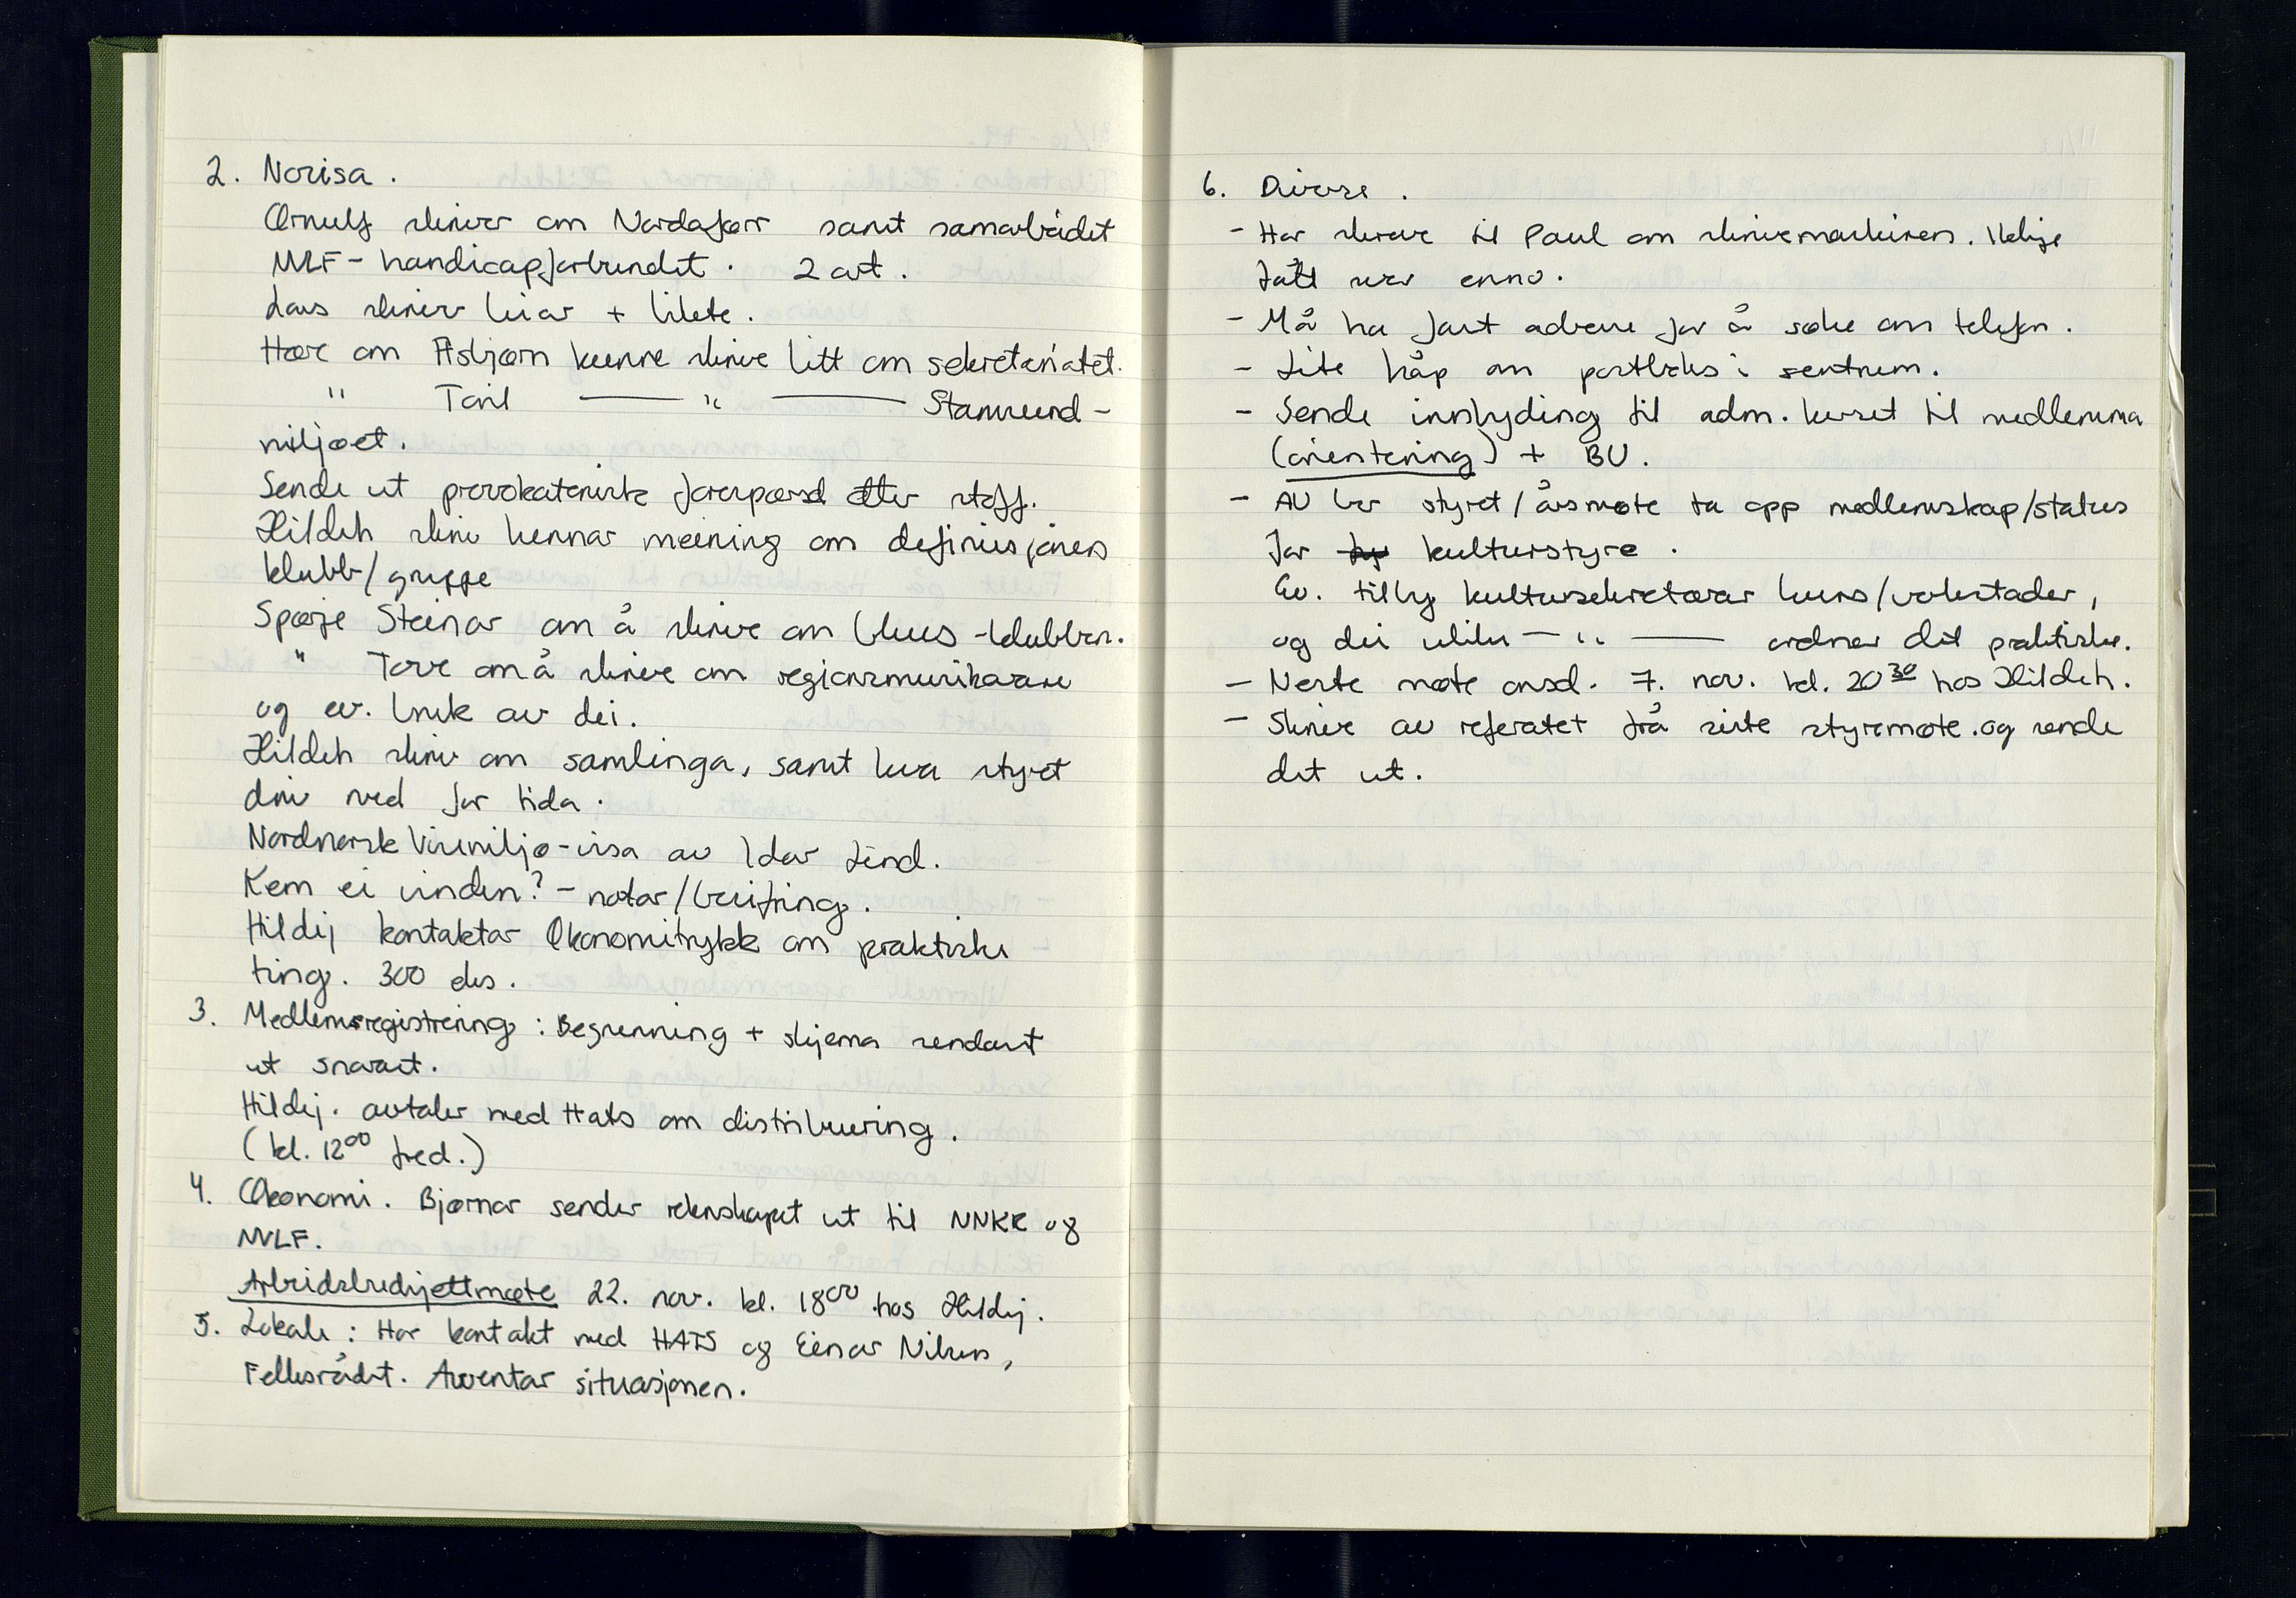 2. Norisa.
Ørnulf skriver om Nordaførr samt samarbeidet
NVLF - handicapforbundet. 2 art.
Lars skriver leiar + bilete.
Høre om Asbjørn kunne skrive litt om sekretariatet.
" Toril —— " —— Stamsund-
miljøet.
Sende ut provokatoriske forespørsel etter stoff.
Hildeh skriv hennar meining om definisjonen
klubb/gruppe
Spørje Steinar om å skrive om blues-klubben.
" Tove om å skrive om regionsmusikarane
og ev. bruk av dei.
Hildeh skriv om samlinga, samt kva styret
driv med for tida.
Nordnorsk Visemiljø-visa av Idar Lind.
Kem ei vinden? - notar/besifring.
Hildij kontaktar Økonomitrykk om praktiske
ting. 300 eks.
3. Medlemsregistrering: Begrunning + skjema sendast
ut snarast.
Hildij. avtaler med Hats om distribuering.
(kl. 12⁰⁰ fred.)
4. Økonomi. Bjørnar sender rekenskapet ut til NNKR og
NVLF.
Arbeidsbudsjettmøte 22. nov. kl. 18⁰⁰ hos Hildij.
5. Lokale: Har kontakt med HATS og Einar Nilsen,
Fellesrådet. Avventar situasjonen.
6. Diverse.
- Har skreve til Paul om skrivemaskinen. Ikkje
fått svar enno.
- Må ha fast adresse for å søke om telefon.
- Lite håp om postboks i sentrum.
- Sende innbyding til adm. kurset til medlemma
(orientering) + BU.
- AU ber styret/årsmøte ta opp medlemskap/status
for by kulturstyre.
Ev. tilby kultursekretærar kurs/verkstader,
og dei —— " —— ordner det praktiske.
- Neste møte onsd. 7. nov. kl. 20³⁰ hos Hildeh.
- Skrive av referatet frå siste styremøte. og sende
det ut.